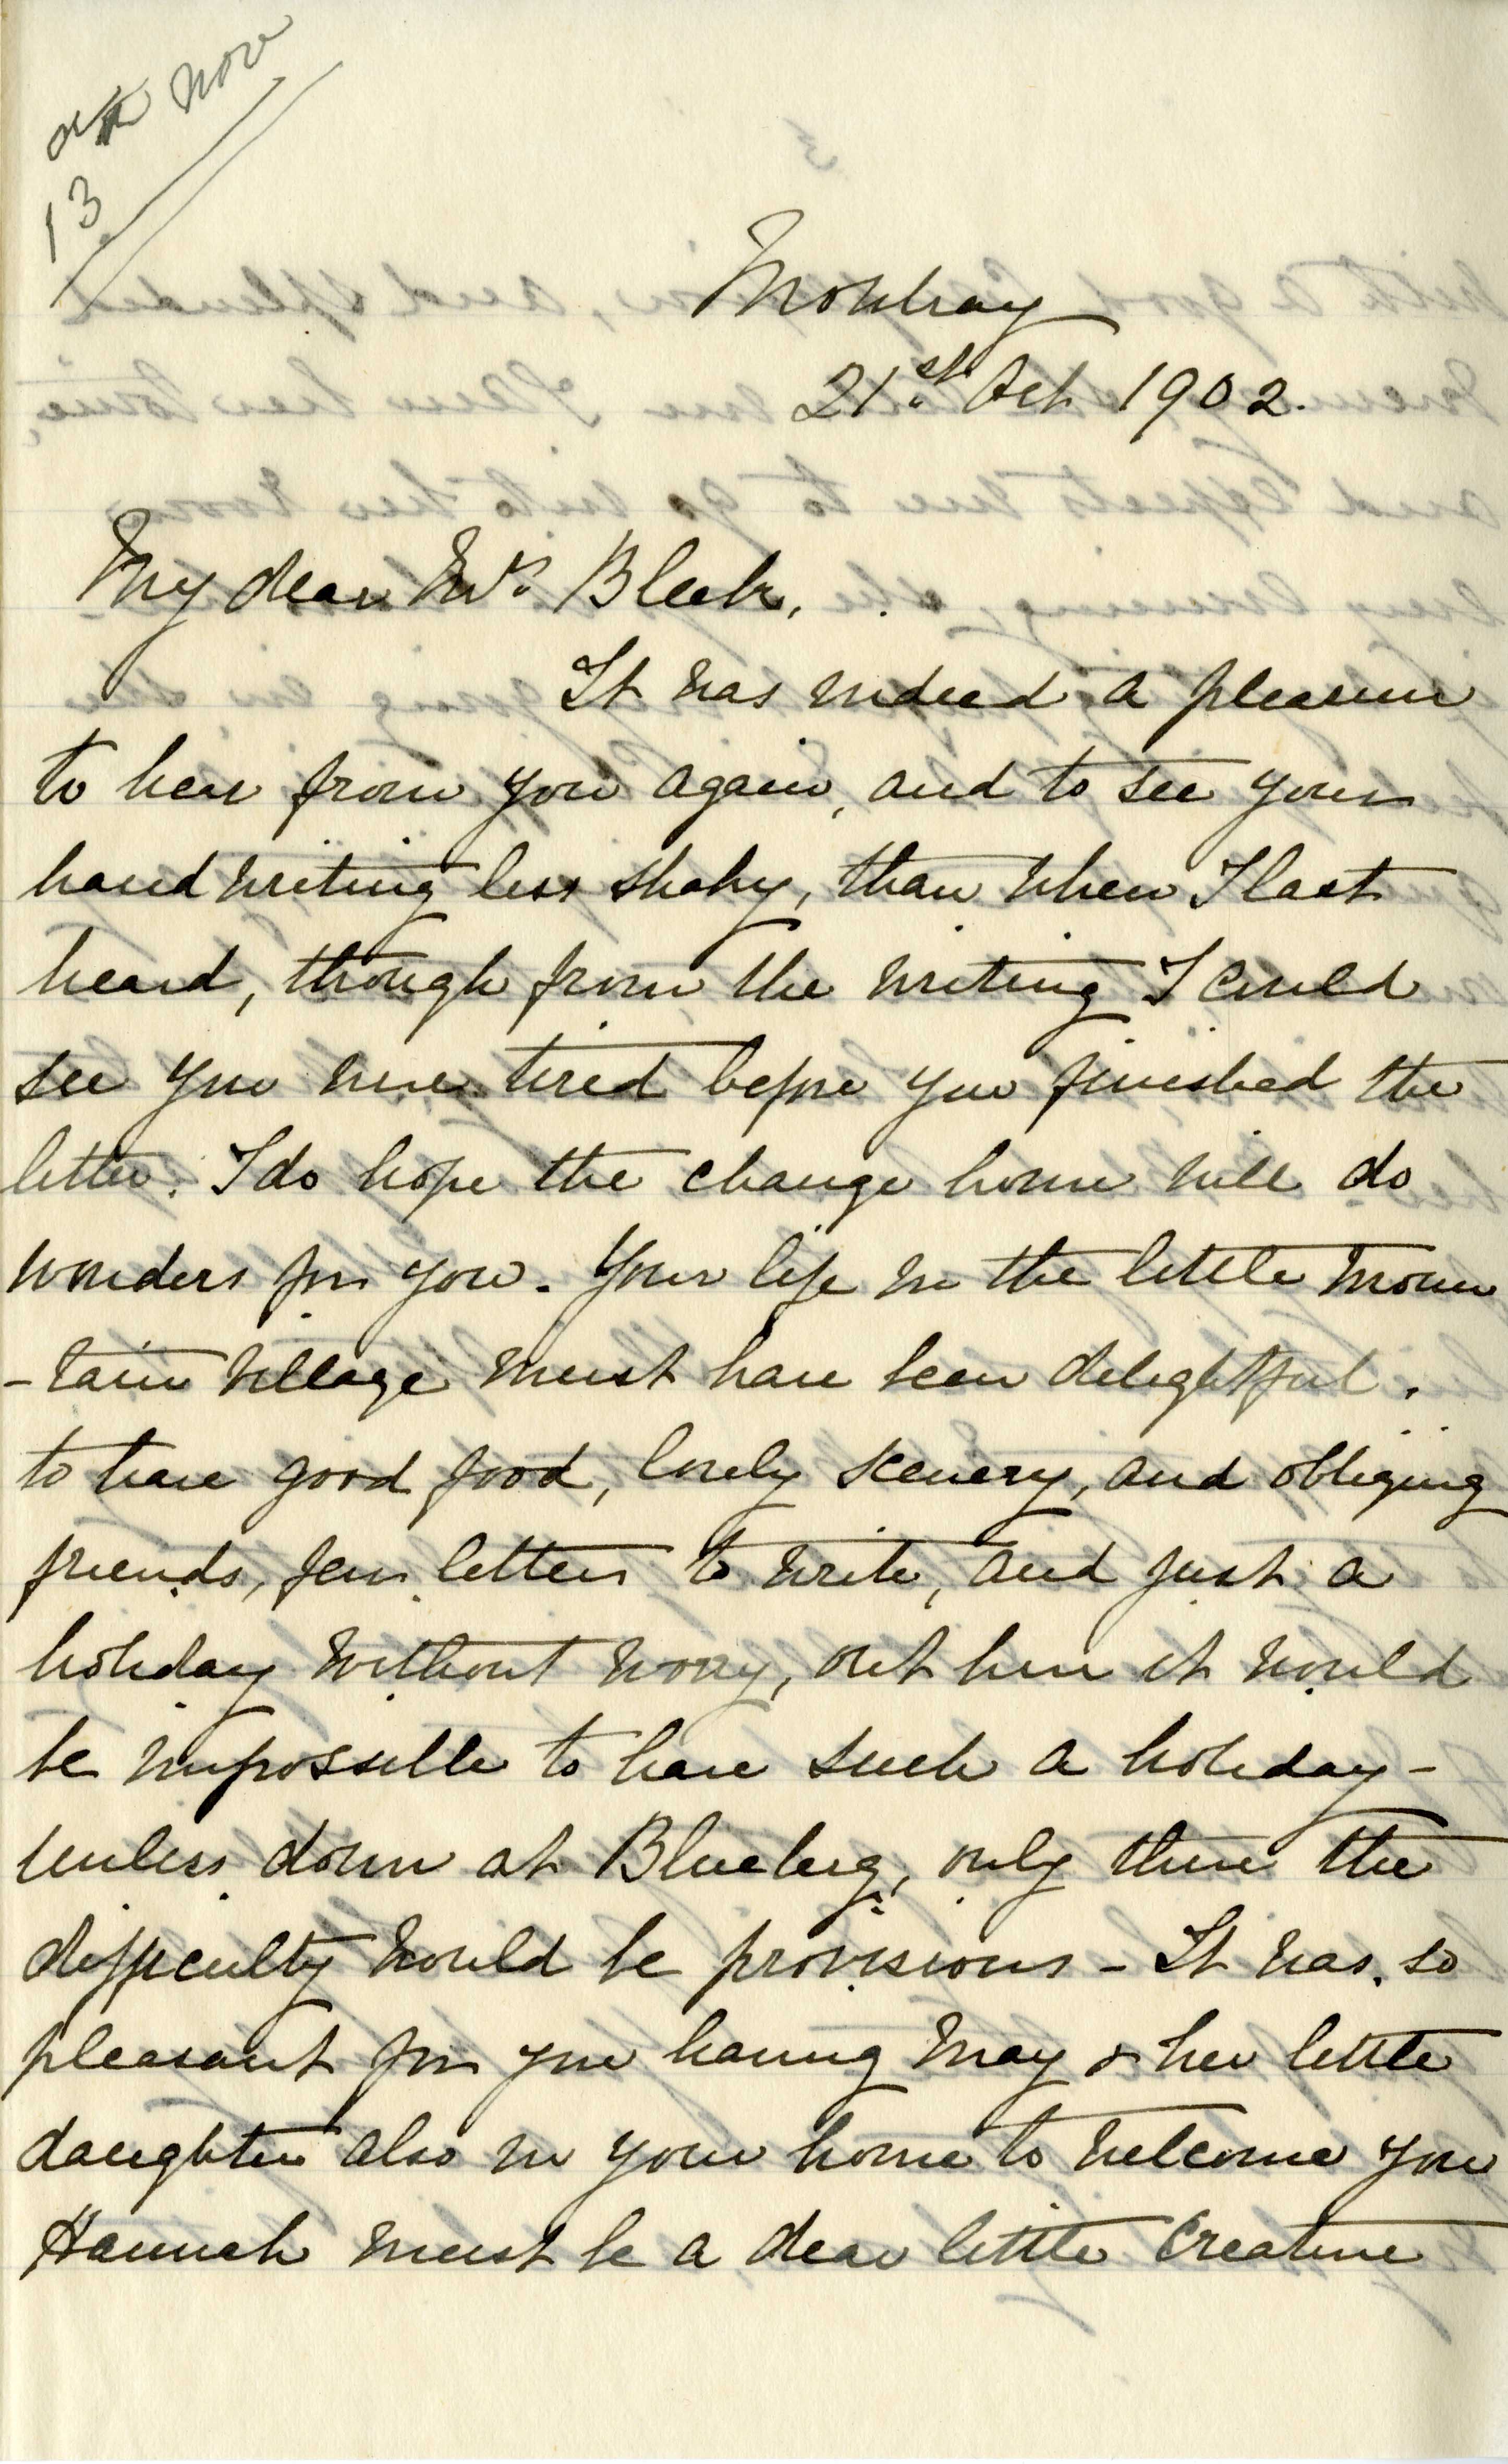 13 Nov
Mowbray
21st Oct 1902.
My dear Mrs Bleek,
It was indeed a pleasure
to hear from you again, and to see your
handwriting less shaky, than when I last
heard, though from the writing I could
see you were tired before you finished the
letter. I do hope the change home will do
wonders for you. Your life in the little moun
-tain village must have been delightful.
to have good food, lovely scenery, and obliging
friends, few letters to write, and just a
holiday without worry, out here it would
be impossible to have such a holiday -
unless down at Blueberg, only there the
difficulty would be provisions - It was so
pleasant for you having May & her little
daughter also in your home to welcome you
Hannah must be a dear little creature